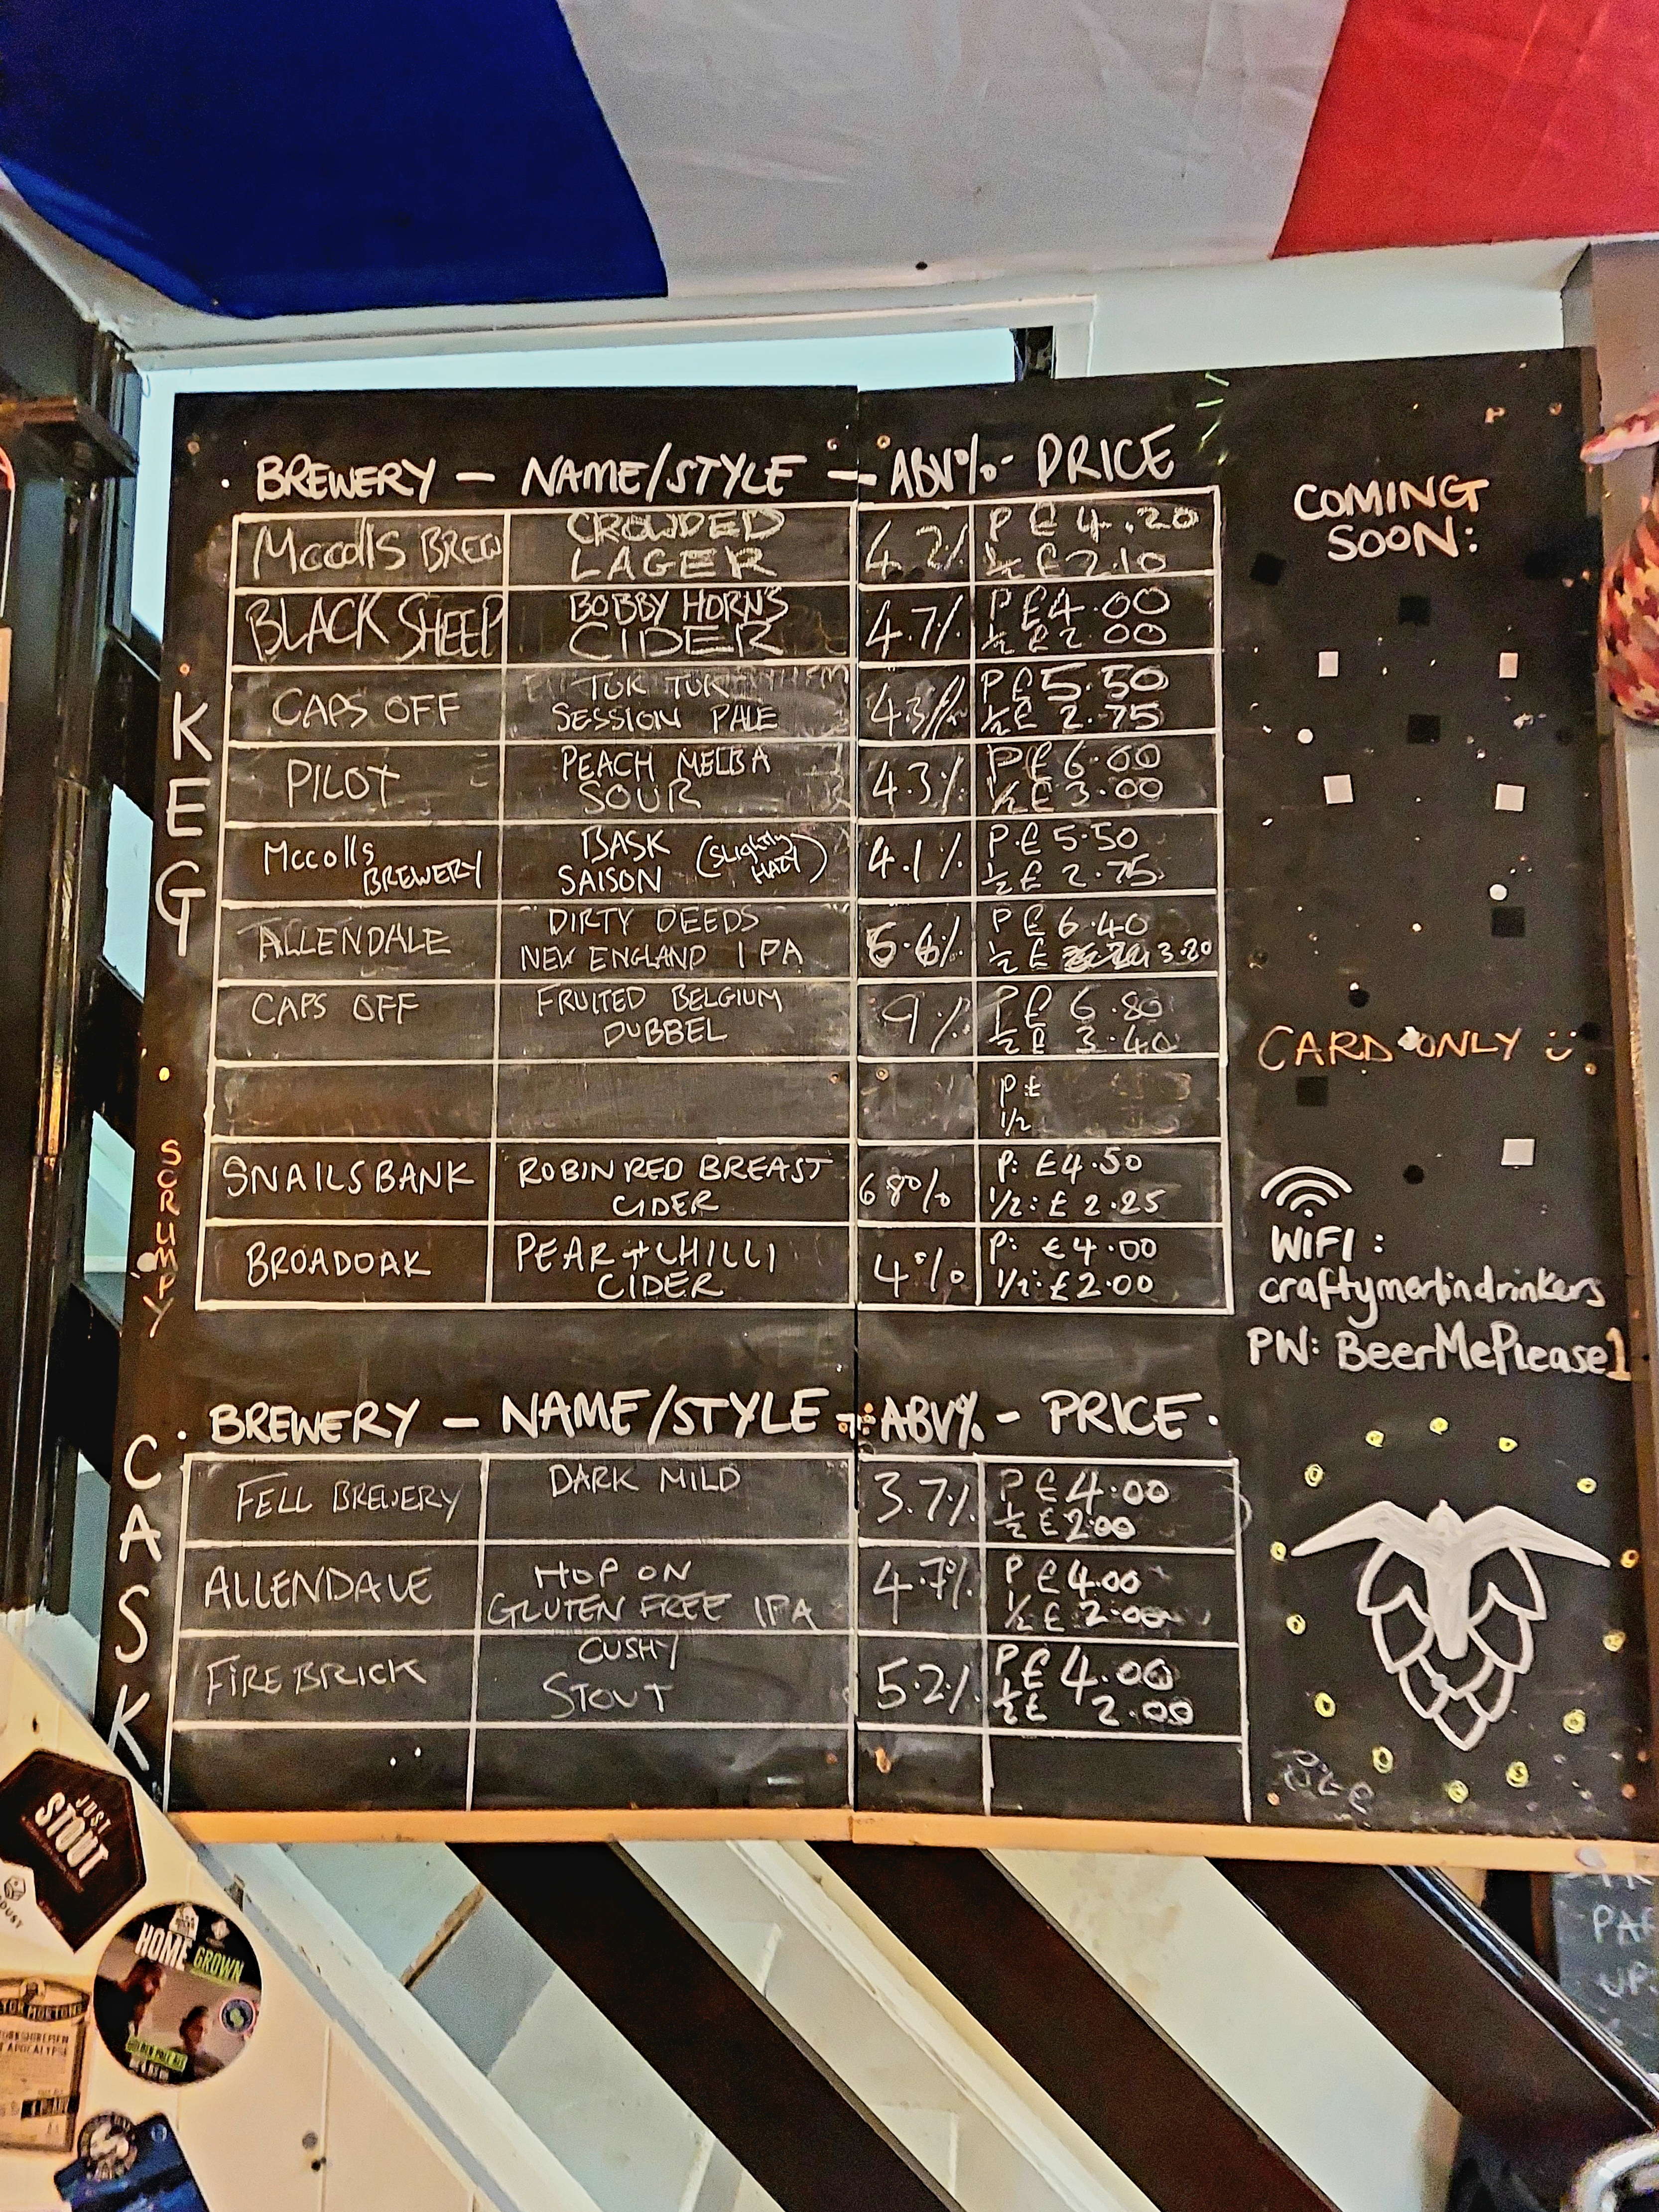 BREWERY - NAME/STYLE - ABV% - PRICE
KEG
Mccolls BREW CROWDED LAGER 4.2% P £4.20 ½ £2.10
BLACK SHEEP BOBBY HORN'S CIDER 4.7% P £4.00 ½ £2.00
CAPS OFF TUK TUK SESSION PALE 4.3% P £5.50 ½ £2.75
PILOT PEACH MELBA SOUR 4.3% P £6.00 ½ £3.00
Mccolls BREWERY BASK SAISON (SLIGHTLY HAZY) 4.1% P £5.50 ½ £2.75
ALLENDALE "DIRTY DEEDS NEW ENGLAND IPA 5.6% P £6.40 ½ £3.20
CAPS OFF FRUITED BELGIUM DUBBEL 9% P £6.80 ½ £3.40
P £
1/2
SCRUMPY
SNAILSBANK ROBIN RED BREAST CIDER 6.8% P: £4.50 1/2: £2.25
BROADOAK PEAR + CHILLI CIDER 4% P: £4.00 1/2: £2.00
CASK
BREWERY - NAME/STYLE - ABV% - PRICE.
FELL BREWERY DARK MILD 3.7% P £4.00 ½ £2.00
ALLENDALE HOP ON GLUTEN FREE IPA 4.7% P £4.00 ½ £2.00
FIREBRICK CUSHY STOUT 5.2% P £4.00 ½ £2.00
COMING
SOON:
CARD ONLY
WIFI:
craftymerlindrinkers
PW: BeerMePlease1
JUST
STOUT
HOME GROWN
GOLDEN PALE ALE
PAR
UP